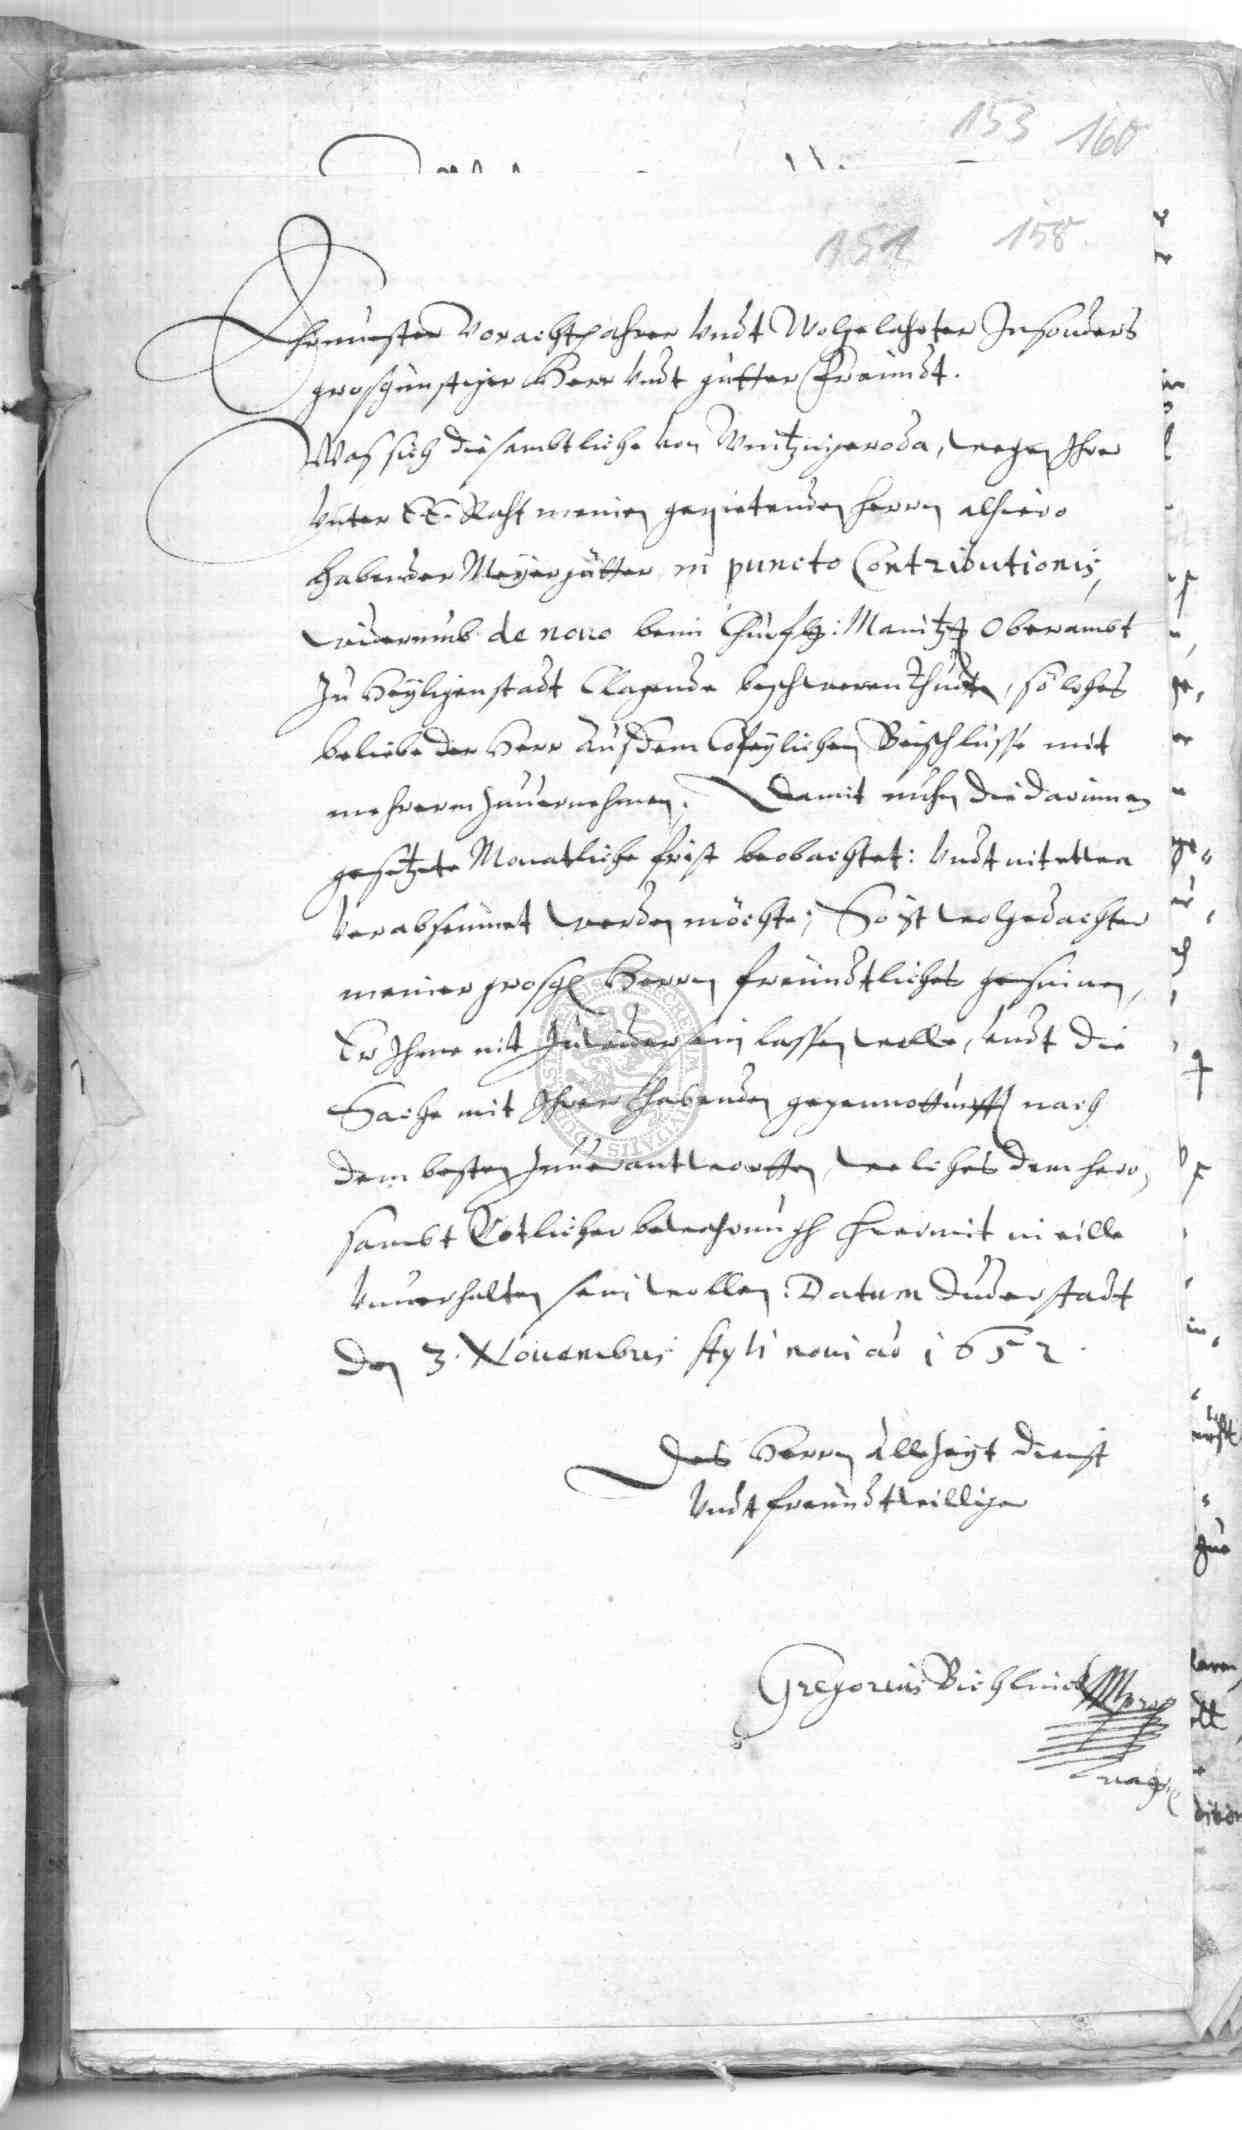 153 160
151 158.
Ehrnuester Vorachtpahrer Undt Wolgelahrter Insonders
grosgünstiger Herr Undt gutter Freundt.
Was sich die sambtliche von Wintzingeroda, wegen Ihrer
Unter EE. Raht meinen gepietenden herrn alhiero
habender Meyergütter in puncto Contributionis,
widerumb de novo beim Churf: Maintz Oberambt
Zu Heyligenstadt Clagende beschweren thudt, solches
beliebe der Herr Aus dem Copeylichen Beischlusse mit
mehrerm zuvernehmen. Damit nuhn die darinnen
gesetzte Monatliche frist beobachtet: Undt nit etwa
Verabseumet werden möchte; So ist wolgedachter
meiner grosg Herrn freundtliches gesinnen,
Er Ihme nit Zuwider sein lassen wolle, undt die
Sache mit Ihrer habenden gegennotturfft nach
dem besten zuverantwortten, welches dem herrn,
sambt Gotlicher bewahrung hiermit in eille
Unverhalten sein wollen. Datum Duderstadt
den 3. Novembris styli novi ao 1652.
Des Herrn Allezeyt dienst
Undt freundtwilliger
Gregorius